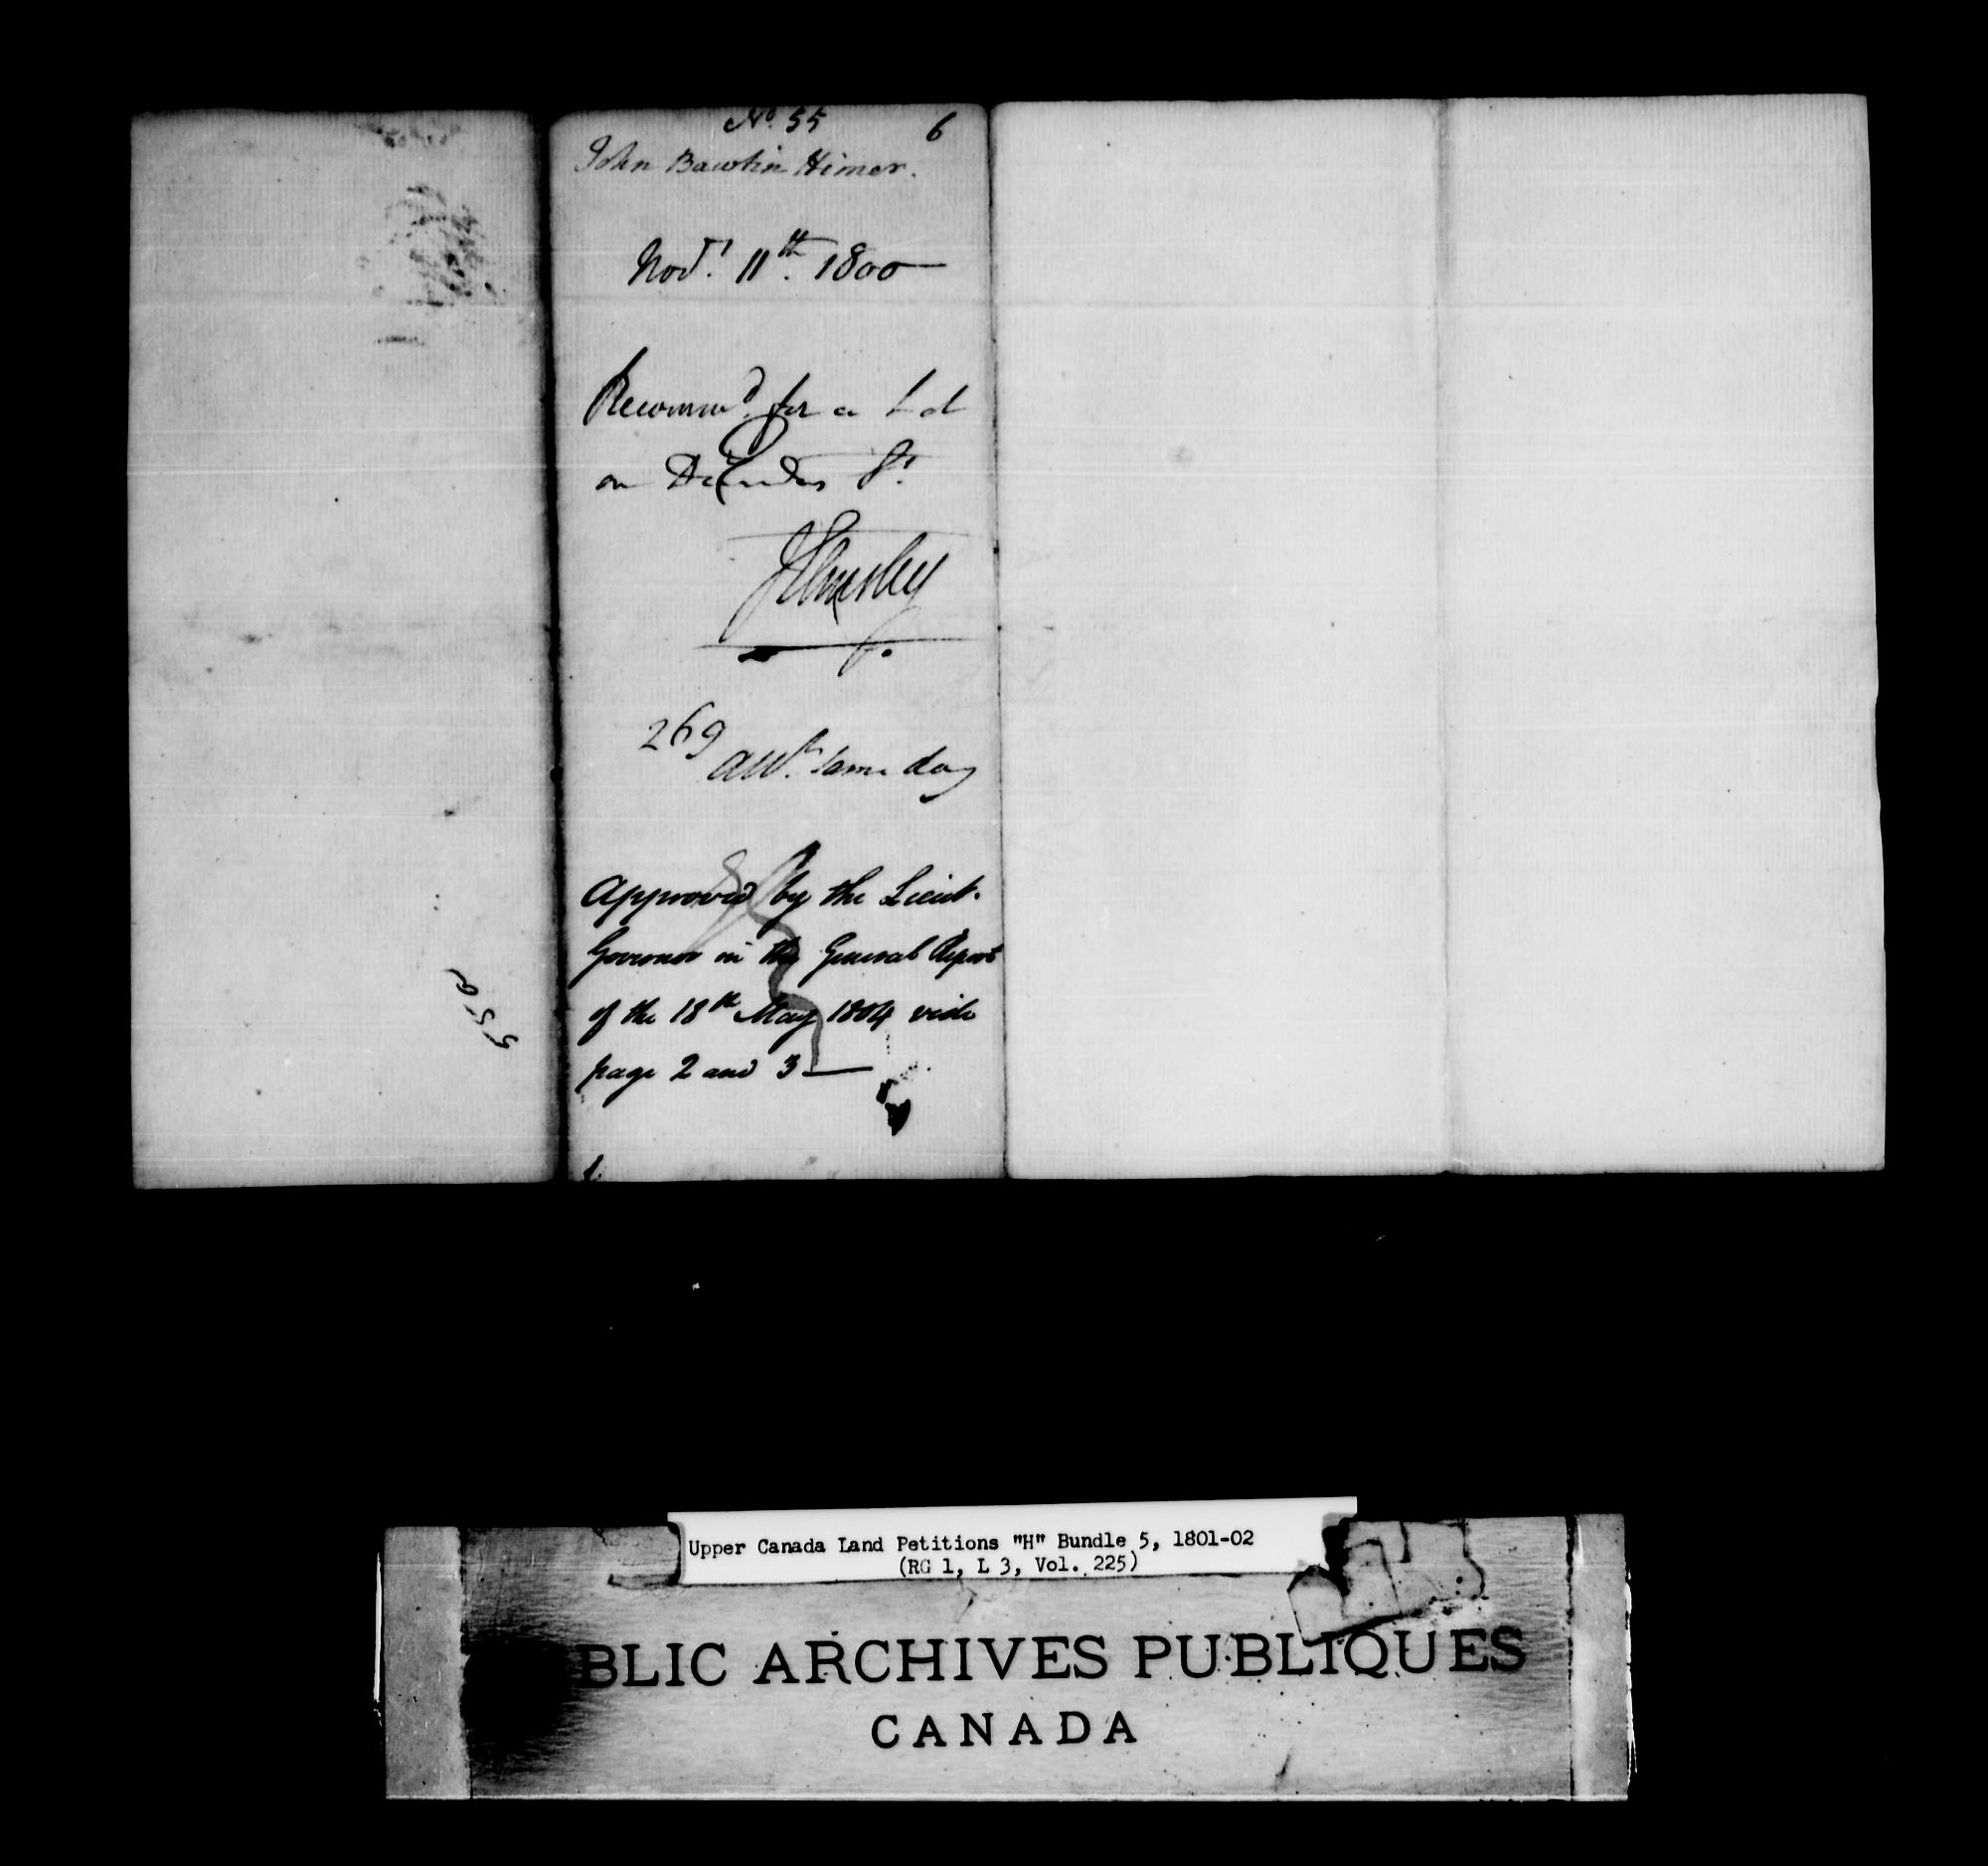 No. 55 6
John Bawtin Himer.
Novr. 11th. 1800
Recommd. for a Lot
on Dundas St.
J Elmsley
269
same day
Approved by the Lieut.
Governor in the General Report
of the 18th May 1804 vide
page 2 and 3
Upper Canada Land Petitions "H" Bundle 5, 1801-02
(RG 1, L 3, Vol. 225)
BLIC ARCHIVES PUBLIQUES
CANADA